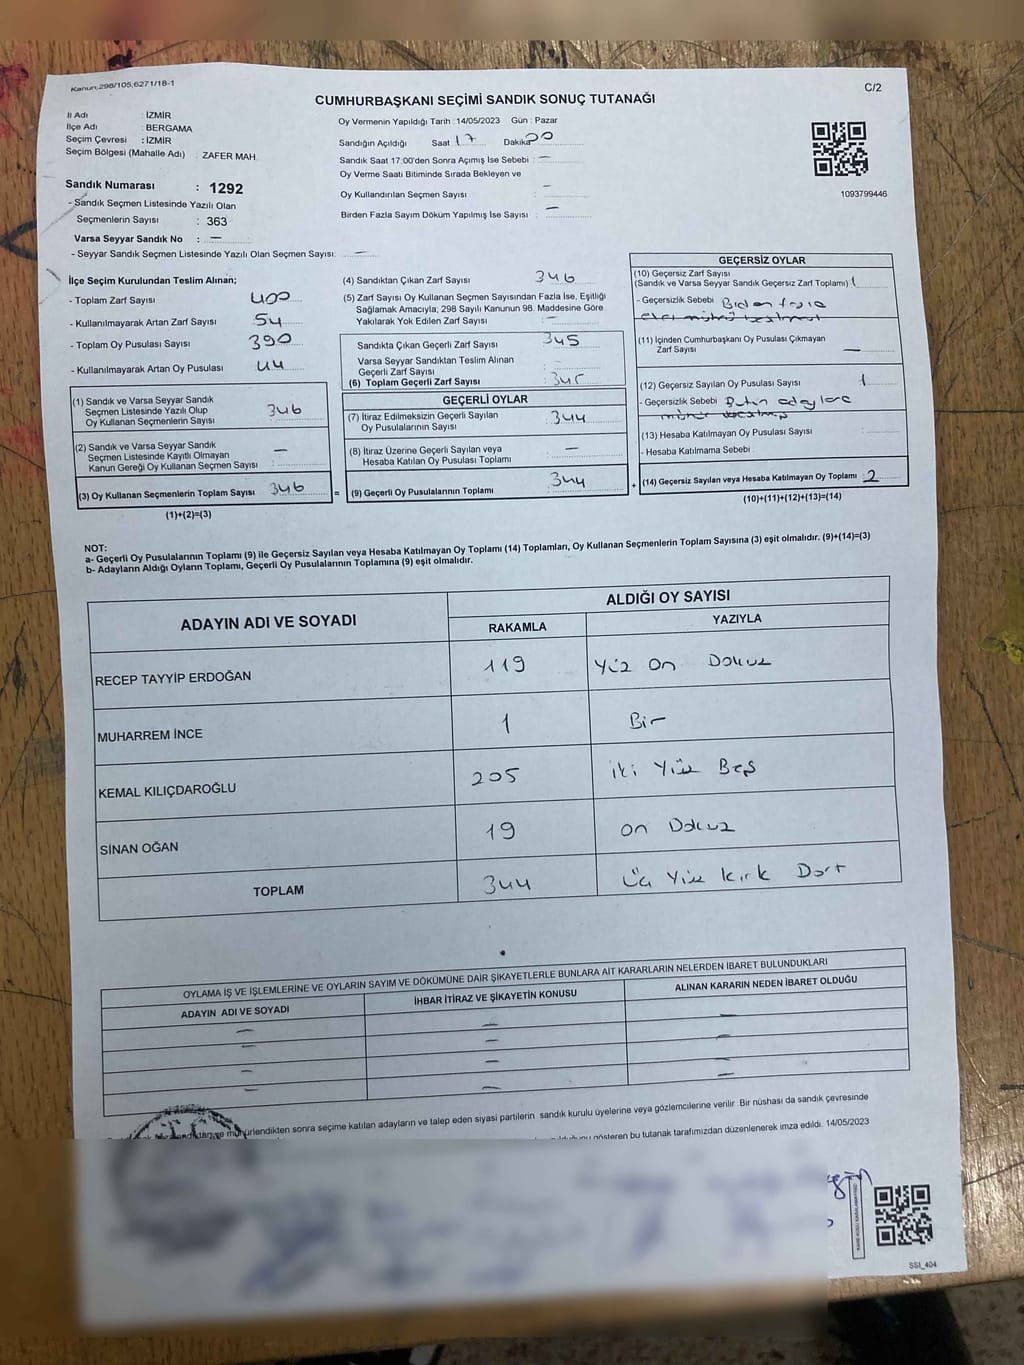 Kanun;298/105,6271/18-1
C/2
CUMHURBAŞKANI SEÇİMİ SANDIK SONUÇ TUTANAĞI
İl Adı : İZMİR
İlçe Adı : BERGAMA
Seçim Çevresi : İZMİR
Seçim Bölgesi (Mahalle Adı) : ZAFER MAH.
Oy Vermenin Yapıldığı Tarih :14/05/2023 Gün : Pazar
Sandığın Açıldığı Saat 17 Dakika 00
Sandık Saat 17:00'den Sonra Açılmış İse Sebebi : —
Oy Verme Saati Bitiminde Sırada Bekleyen ve
Oy Kullandırılan Seçmen Sayısı : —
Birden Fazla Sayım Döküm Yapılmış İse Sayısı : —
1093799446
Sandık Numarası : 1292
- Sandık Seçmen Listesinde Yazılı Olan
Seçmenlerin Sayısı : 363
Varsa Seyyar Sandık No : —
- Seyyar Sandık Seçmen Listesinde Yazılı Olan Seçmen Sayısı: —
İlçe Seçim Kurulundan Teslim Alınan;
- Toplam Zarf Sayısı 400
- Kullanılmayarak Artan Zarf Sayısı 54
- Toplam Oy Pusulası Sayısı 390
- Kullanılmayarak Artan Oy Pusulası 44
(1) Sandık ve Varsa Seyyar Sandık
Seçmen Listesinde Yazılı Olup
Oy Kullanan Seçmenlerin Sayısı : 346
(2) Sandık ve Varsa Seyyar Sandık
Seçmen Listesinde Kayıtlı Olmayan
Kanun Gereği Oy Kullanan Seçmen Sayısı : —
(3) Oy Kullanan Seçmenlerin Toplam Sayısı : 346
(1)+(2)=(3)
=
(4) Sandıktan Çıkan Zarf Sayısı 346
(5) Zarf Sayısı Oy Kullanan Seçmen Sayısından Fazla İse, Eşitliği
Sağlamak Amacıyla; 298 Sayılı Kanunun 98. Maddesine Göre
Yakılarak Yok Edilen Zarf Sayısı : —
Sandıkta Çıkan Geçerli Zarf Sayısı 345
Varsa Seyyar Sandıktan Teslim Alınan
Geçerli Zarf Sayısı : —
(6) Toplam Geçerli Zarf Sayısı : 345
GEÇERLİ OYLAR
(7) İtiraz Edilmeksizin Geçerli Sayılan
Oy Pusulalarının Sayısı : 344
(8) İtiraz Üzerine Geçerli Sayılan veya
Hesaba Katılan Oy Pusulası Toplamı : —
(9) Geçerli Oy Pusulalarının Toplamı : 344
+
GEÇERSİZ OYLAR
(10) Geçersiz Zarf Sayısı
(Sandık ve Varsa Seyyar Sandık Geçersiz Zarf Toplamı) 1
- Geçersizlik Sebebi : Birden fazla
(11) İçinden Cumhurbaşkanı Oy Pusulası Çıkmayan
Zarf Sayısı : —
(12) Geçersiz Sayılan Oy Pusulası Sayısı 1
- Geçersizlik Sebebi : Bütün adaylara
mühür
(13) Hesaba Katılmayan Oy Pusulası Sayısı :
- Hesaba Katılmama Sebebi :
(14) Geçersiz Sayılan veya Hesaba Katılmayan Oy Toplamı : 2
(10)+(11)+(12)+(13)=(14)
NOT:
a- Geçerli Oy Pusulalarının Toplamı (9) ile Geçersiz Sayılan veya Hesaba Katılmayan Oy Toplamı (14) Toplamları, Oy Kullanan Seçmenlerin Toplam Sayısına (3) eşit olmalıdır. (9)+(14)=(3)
b- Adayların Aldığı Oyların Toplamı, Geçerli Oy Pusulalarının Toplamına (9) eşit olmalıdır.
ADAYIN ADI VE SOYADI
ALDIĞI OY SAYISI
RAKAMLA YAZIYLA
RECEP TAYYİP ERDOĞAN 119 Yüz On Dokuz
MUHARREM İNCE 1 Bir
KEMAL KILIÇDAROĞLU 205 iki Yüz Beş
SİNAN OĞAN 19 on Dokuz
TOPLAM 344 Üç Yüz kırk Dört
OYLAMA İŞ VE İŞLEMLERİNE VE OYLARIN SAYIM VE DÖKÜMÜNE DAİR ŞİKAYETLERLE BUNLARA AİT KARARLARIN NELERDEN İBARET BULUNDUKLARI
ADAYIN ADI VE SOYADI İHBAR İTİRAZ VE ŞİKAYETİN KONUSU ALINAN KARARIN NEDEN İBARET OLDUĞU
— — —
— — —
— — —
— — —
mühürlendikten sonra seçime katılan adayların ve talep eden siyasi partilerin sandık kurulu üyelerine veya gözlemcilerine verilir. Bir nüshası da sandık çevresinde
gösteren bu tutanak tarafımızdan düzenlenerek imza edildi. 14/05/2023
SSI_404